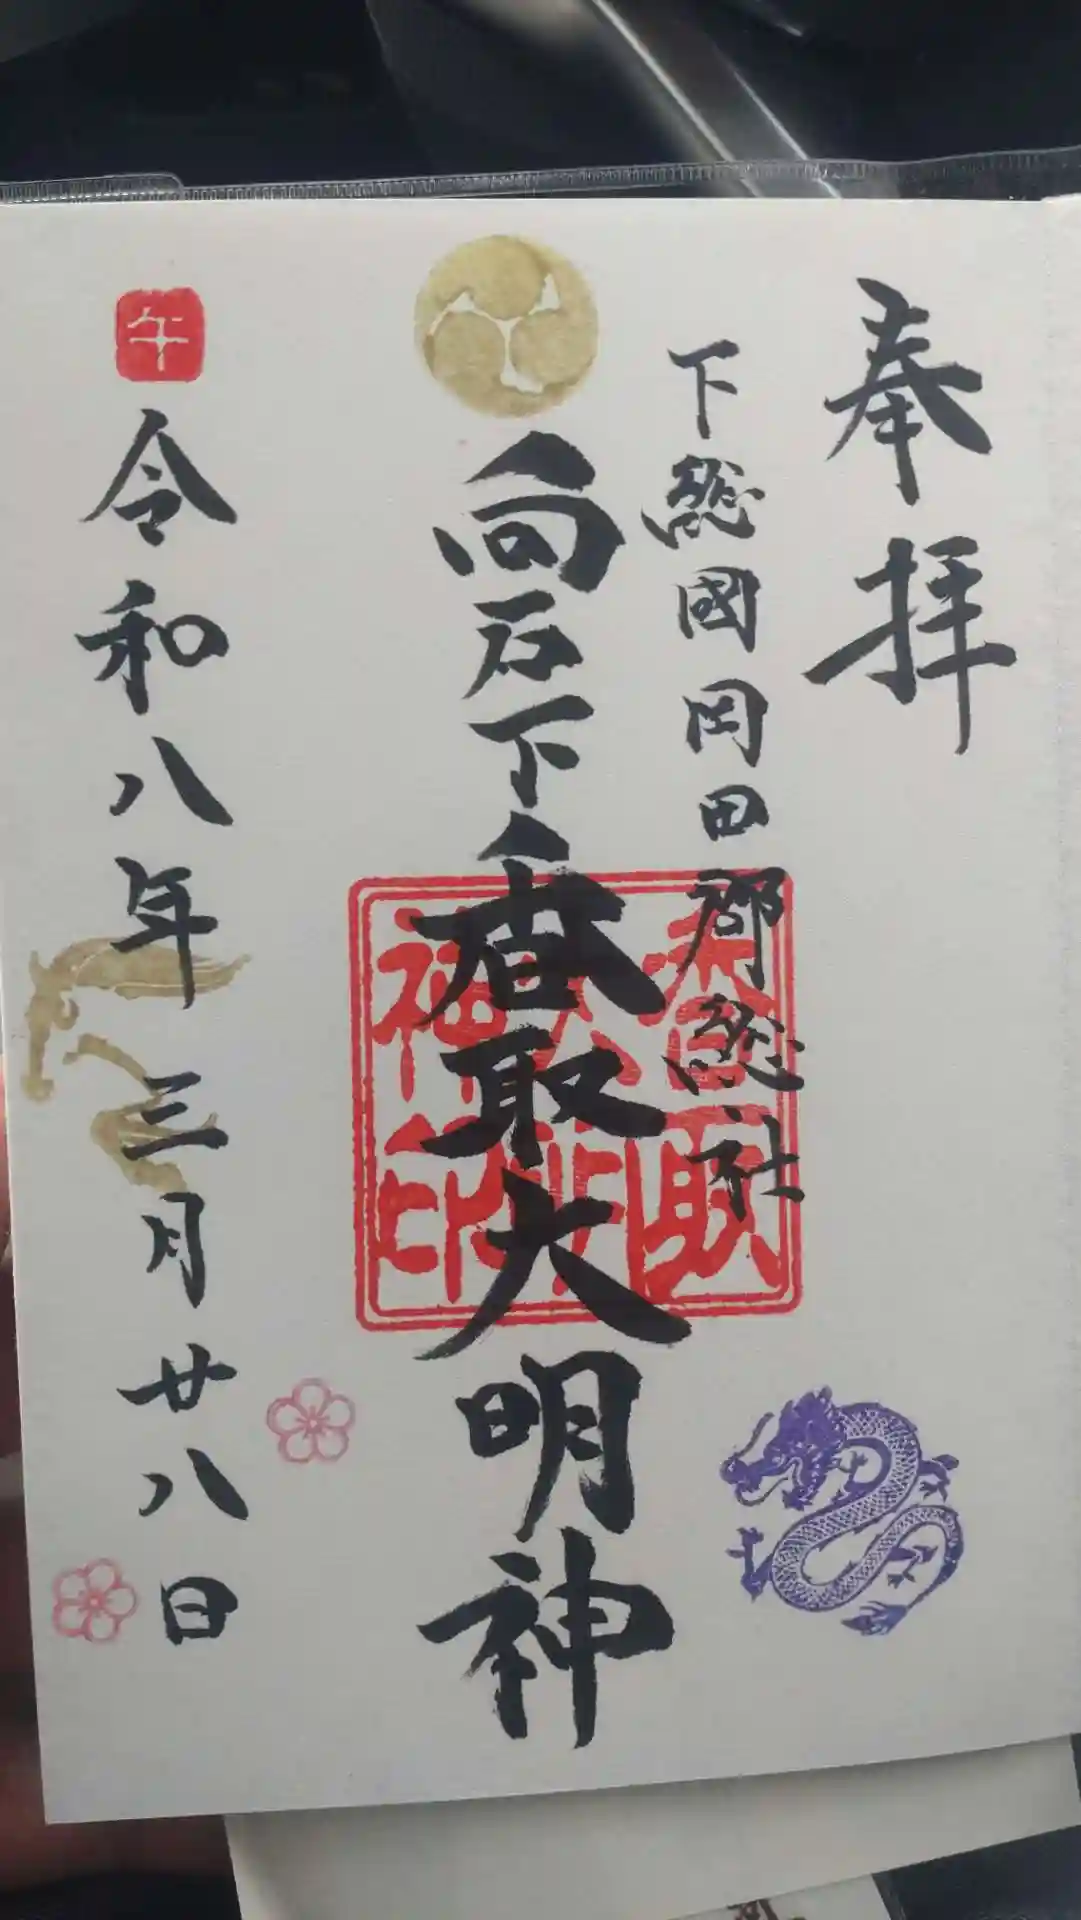 奉拝
下総國岡田郡総社
向石下香取大明神
香取大明神印
午
令和八年三月廿八日